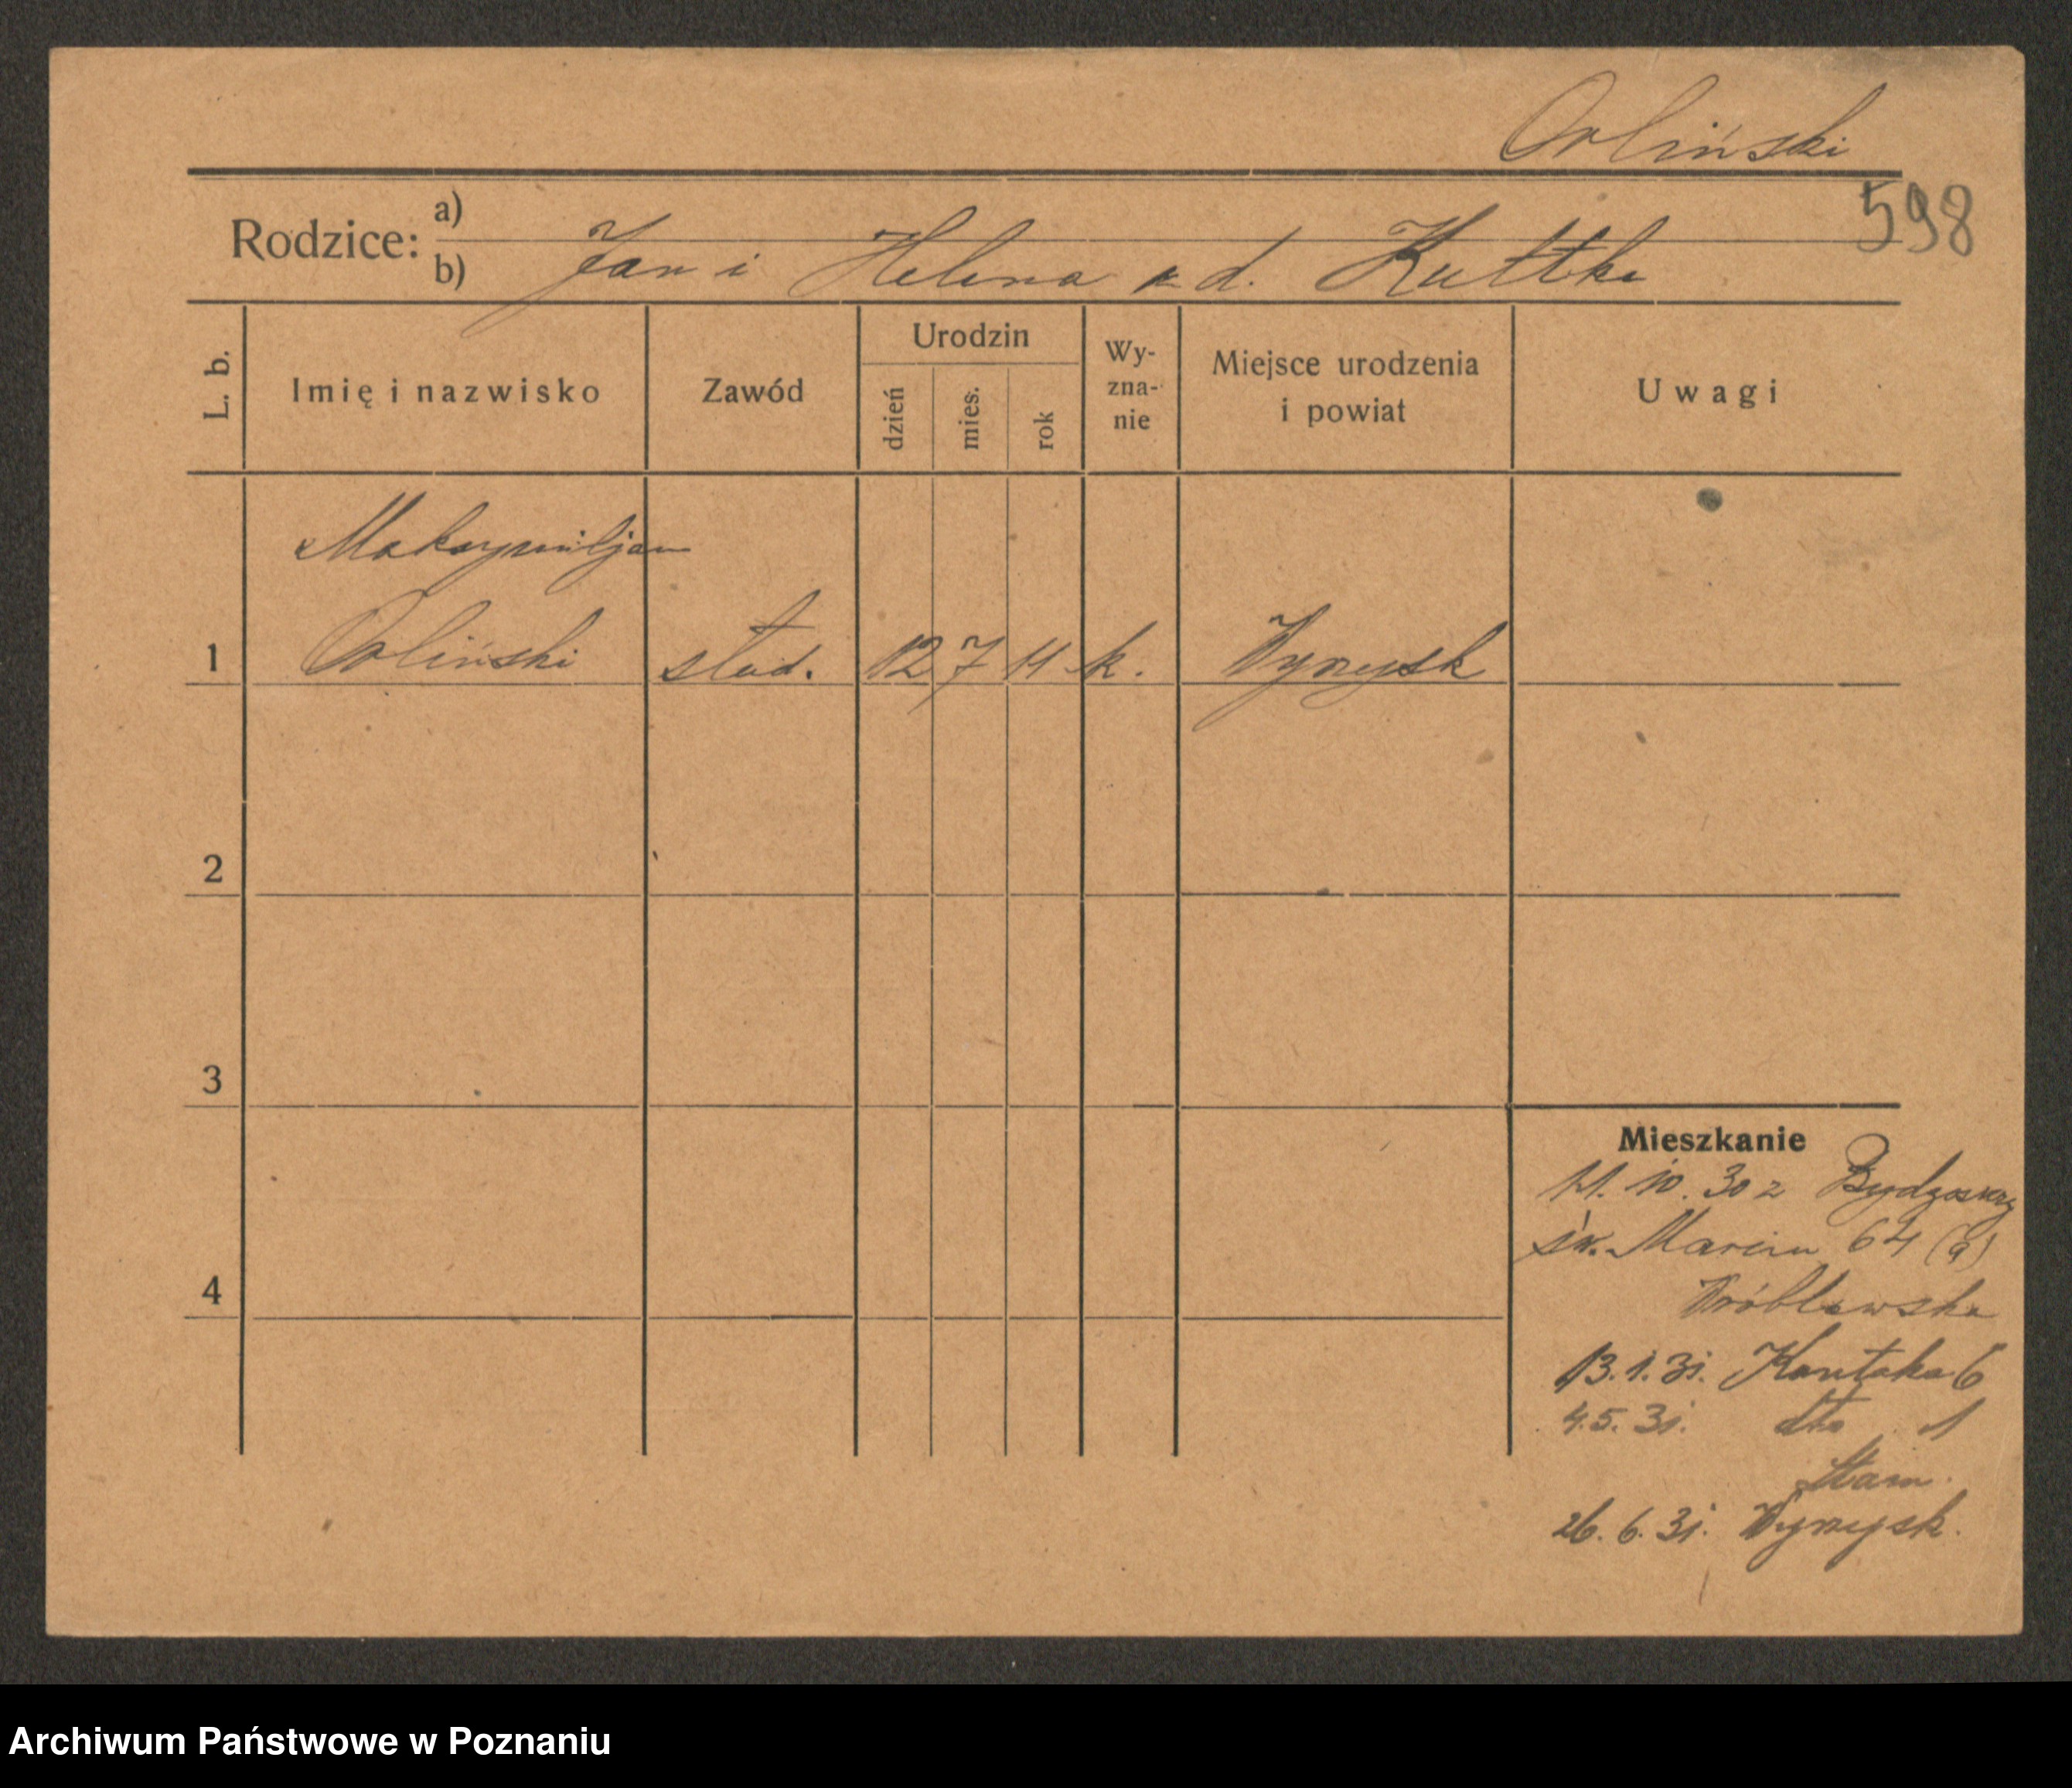 Orliński
598
Rodzice: a)
b) Jan i Helena z d. Kuttke
L. b. Imię i nazwisko Zawód Urodzin dzień mies. rok Wy-zna-nie Miejsce urodzenia i powiat Uwagi
Maksymiljan
1 Orliński stud. 12 7 11 k. Wyrzysk
2
3
Mieszkanie
11. 10. 30 z Bydgoszczy
św. Marcin 64 (a)
4 Wróblewska
13. 1. 31. Kantaka 6
4. 5. 31. dto 1
26. 6. 31. Wyrzysk.
Archiwum Państwowe w Poznaniu